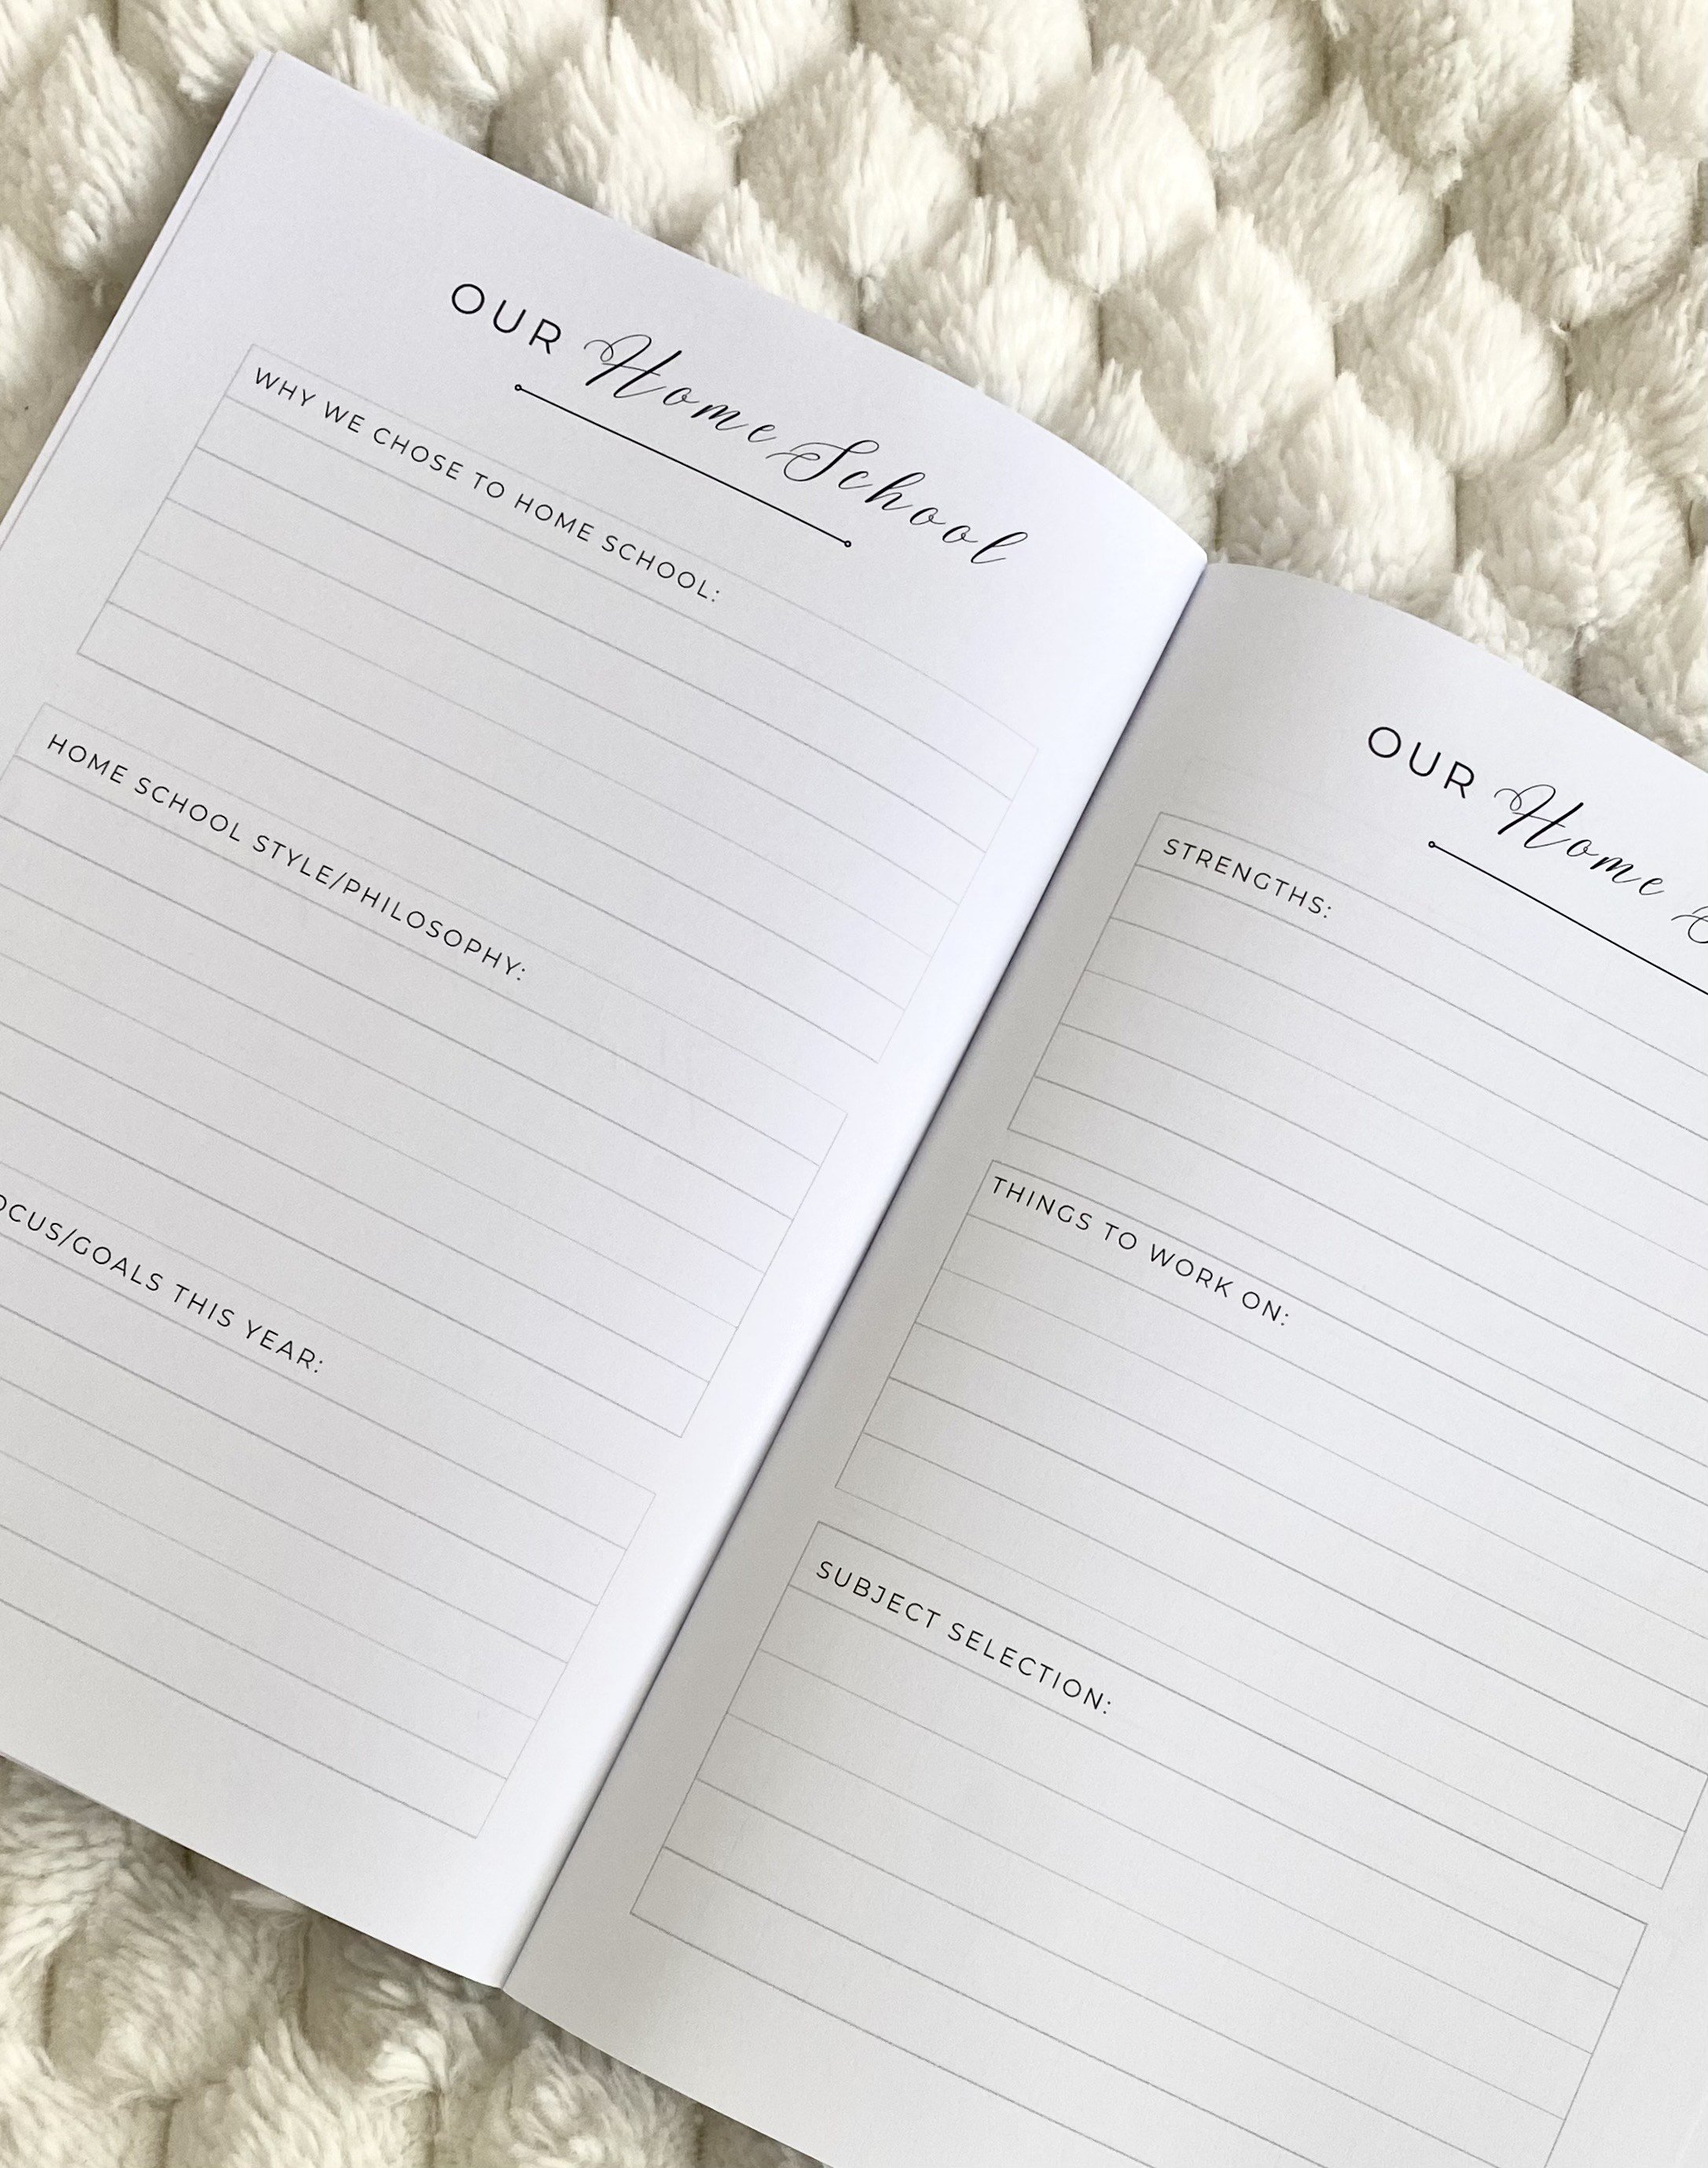 OUR Home School
WHY WE CHOSE TO HOME SCHOOL:
HOME SCHOOL STYLE/PHILOSOPHY:
GOALS THIS YEAR:
OUR Home
STRENGTHS:
THINGS TO WORK ON:
SUBJECT SELECTION: